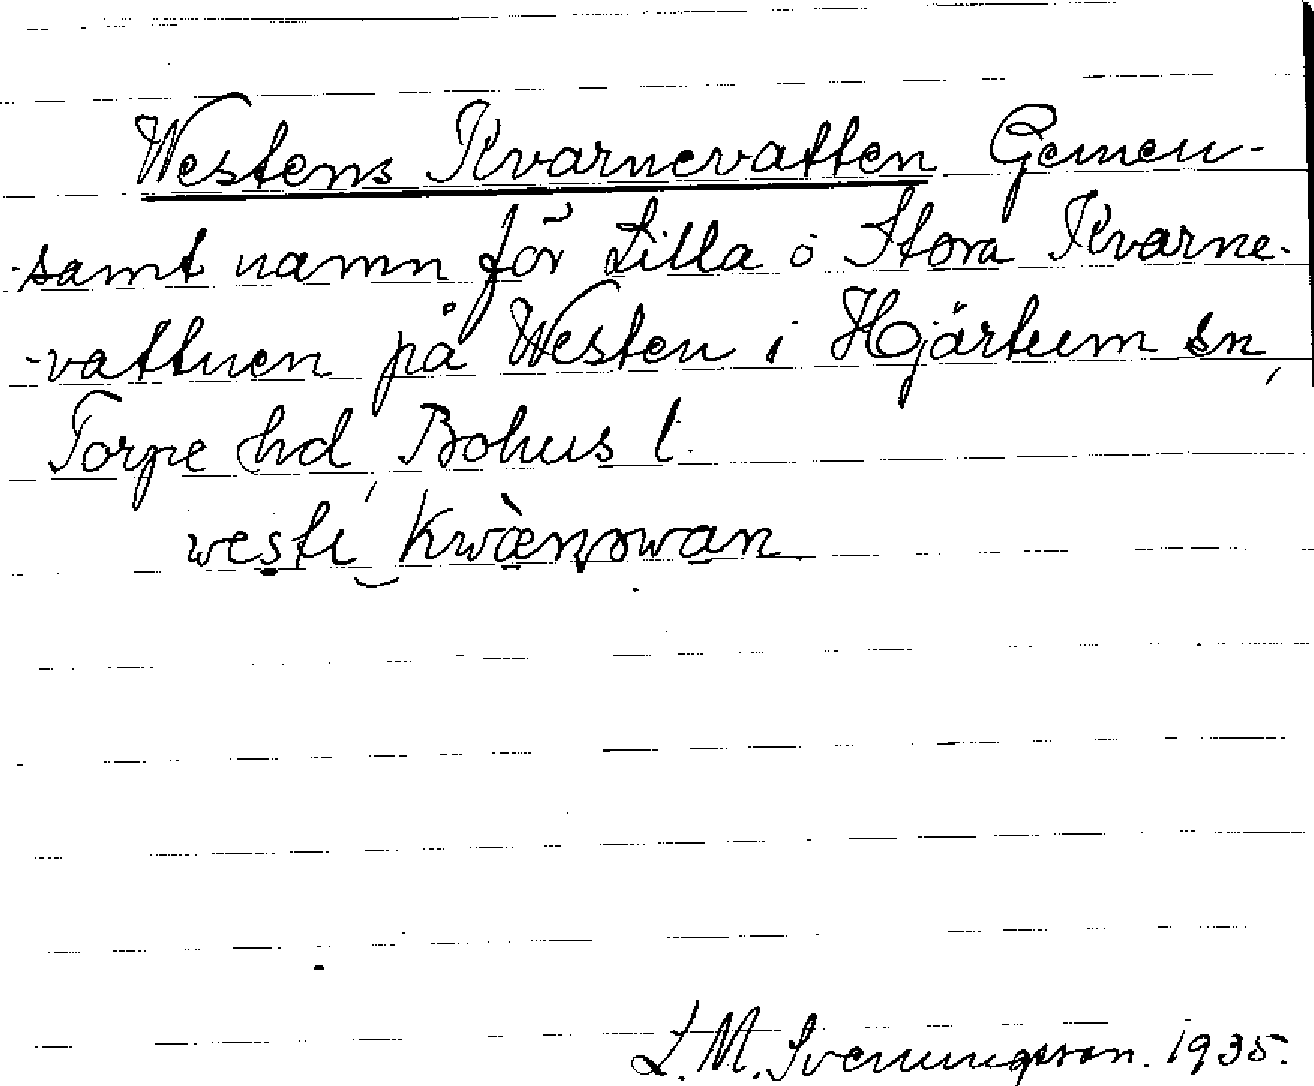 Westens Kvarnevatten Gemen-
-samt namn för Lilla o Stora Kvarne-
-vattnen på Westen i Hjärtum sn,
Torpe hd, Bohus l.
L.M. Svenungsson. 1935.